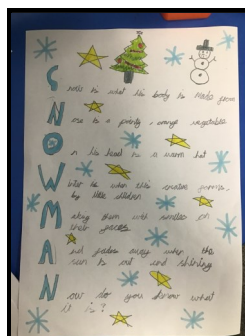 Snow is what his body is made from
Nose is a pointy, orange vegetable
On his head is a warm hat
W when this
by little children
Making them with smiles on
their faces
And fades away when the
sun is out and shining
Now do you know what
it is?